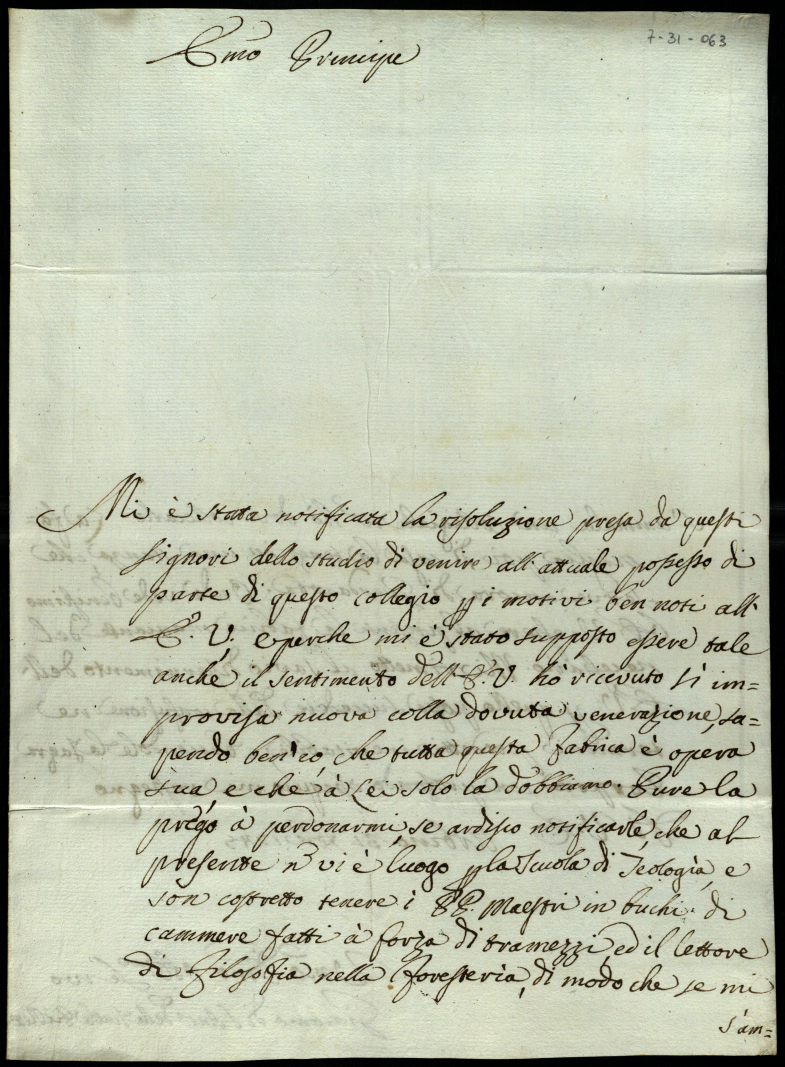 7-31-063
Emo Principe
Mi è stata notificata la risoluzione presa da questi
signori dello studio di venire all'attuale possesso di
parte di questo collegio p i motivi ben noti all'
E. V. e perche mi è stato supposto essere tale
anche il sentimento dell'E. V. hò ricevuto sì im=
provisa nuova colla dovuta venerazione, sa=
pendo ben'io, che tutta questa fabrica è opera
sua e che à Lei solo la dobbiamo. Pure la
prego à perdonarmi, se ardisco notificarle, che al
presente nō vi è luogo p la scuola di Teologia, e
son costretto tenere i PP. Maestri in buchi di
cammere fatti à forza di tramezzi, ed il lettore
di filosofia nella foresteria, di modo che se mi
s'am=